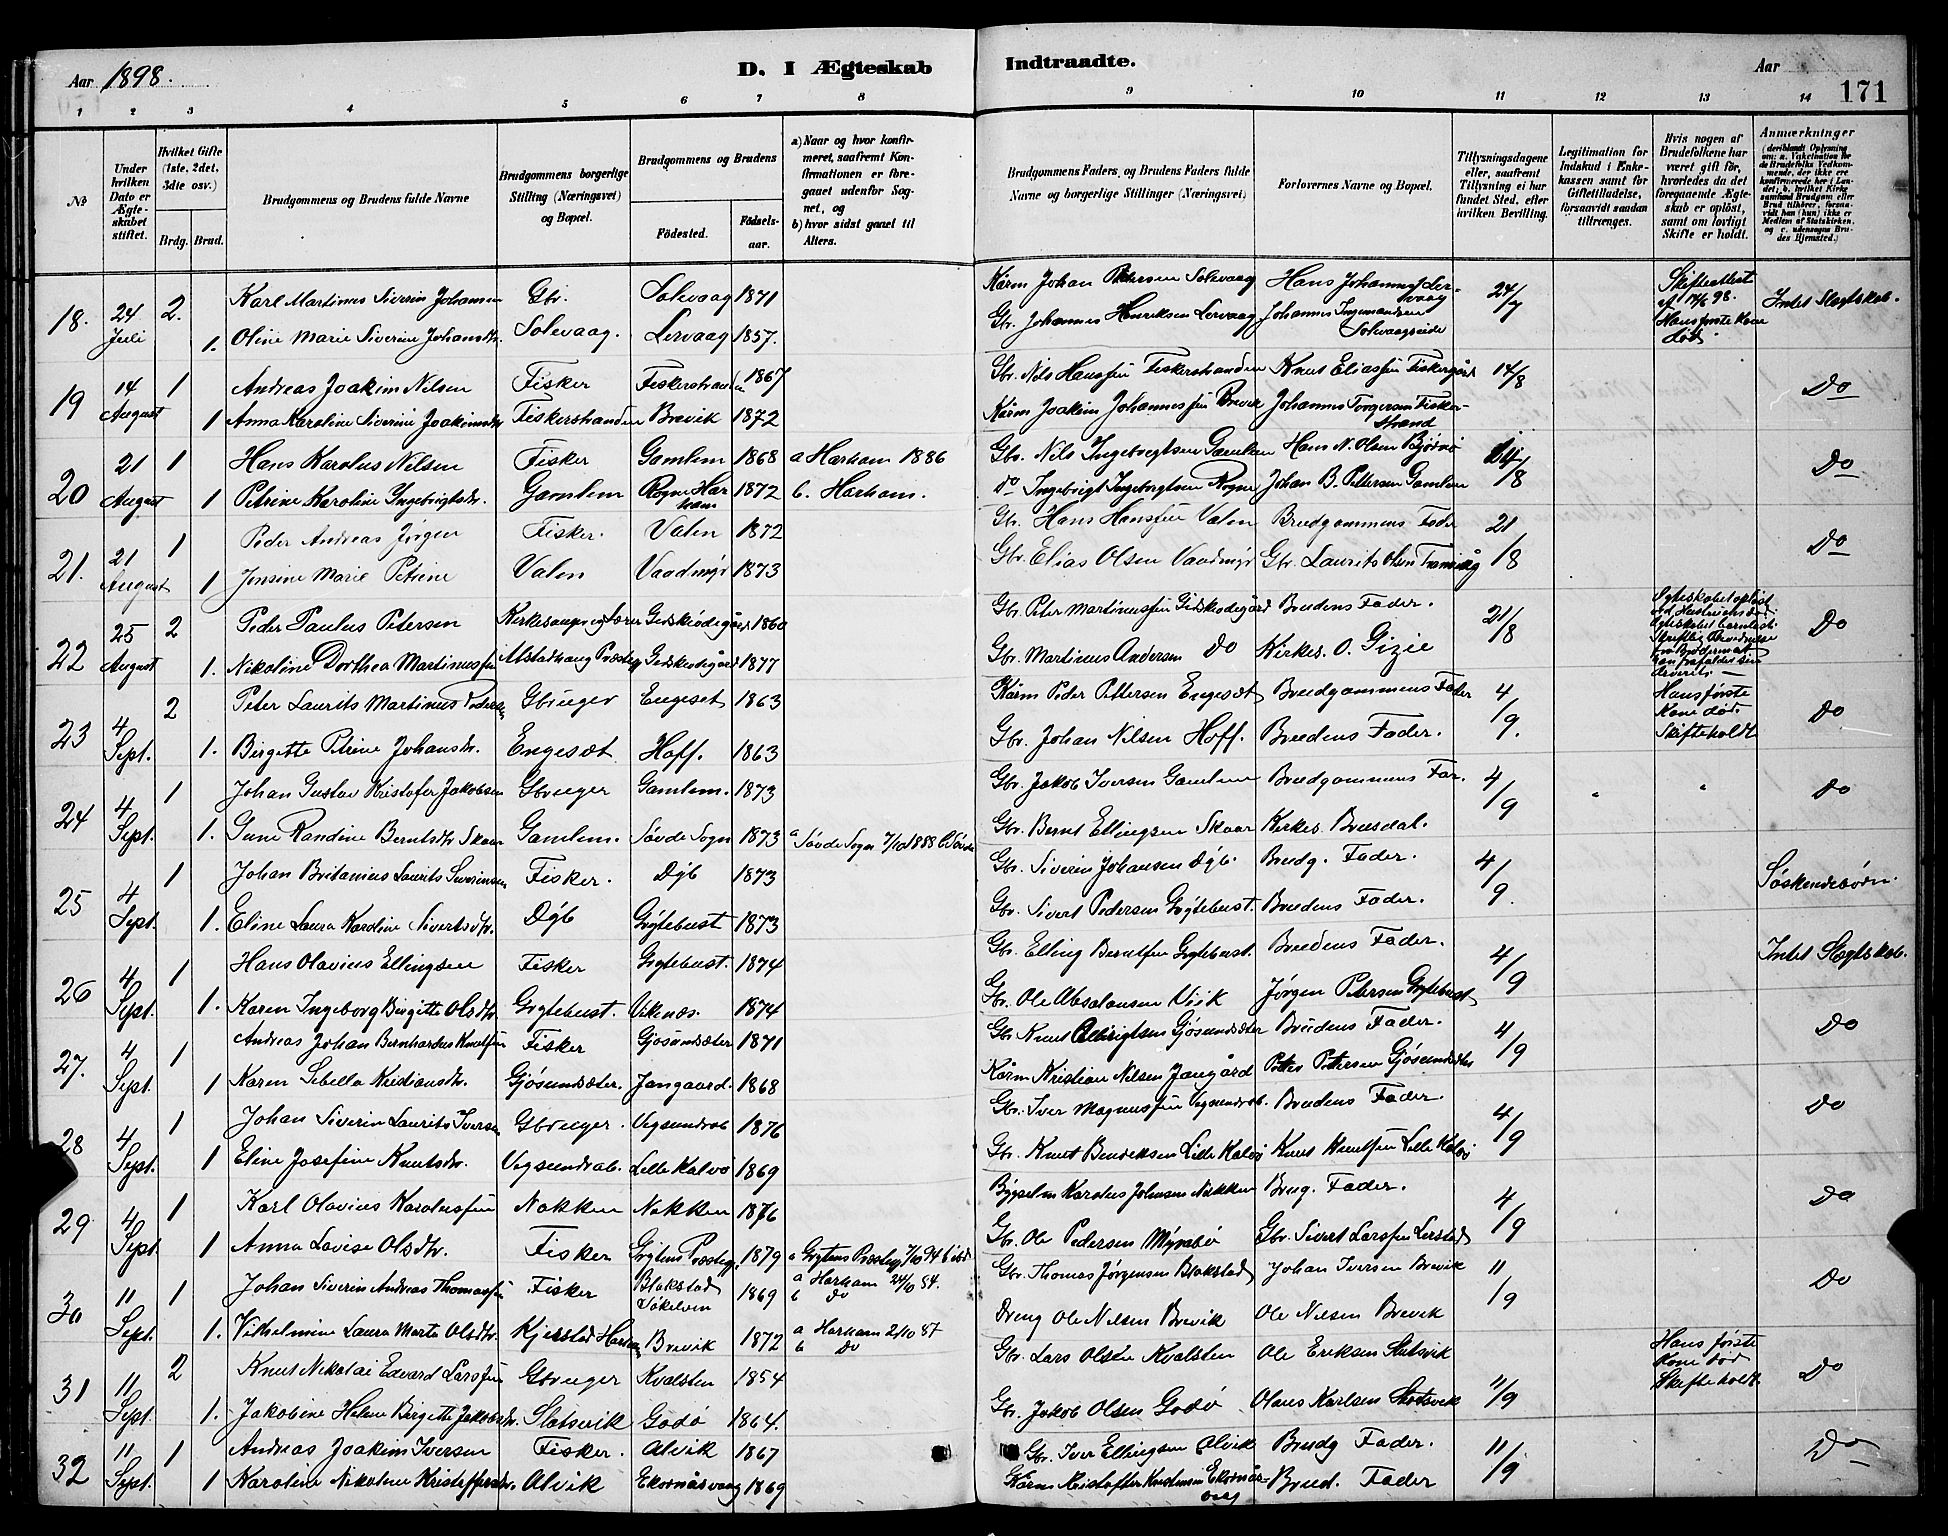 Aar 1898.
D. I Ægteskab Indtraadte.
Aar
171
1 2 3 4 5 6 7 8 9 10 11 12 13 14
No
Under hvilken Dato er Ægteskabet stiftet.
Hvilket Gifte (1ste, 2det, 3die osv.)
Brdg. Brud.
Brudgommens og Brudens fulde Navne
Brudgommens borgerlige Stilling (Næringsvei) og Bopæl.
Brudgommens og Brudens
Fødested.
Fødselsaar.
a) Naar og hvor konfirmeret, saafremt Konfirmationen er foregaaet udenfor Sognet, og
b) hvor sidst gaaet til Alters.
Brudgommens Faders, og Brudens Faders fulde Navne og borgerlige Stillinger (Næringsvei)
Forlovernes Navne og Bopæl.
Tillysningsdagene eller, saafremt Tillysning ei har fundet Sted, efter hvilken Bevilling.
Legitimation for Indskud i Enkekassen samt for Giftetilladelse, forsaavidt saadan tiltrænges.
Hvis nogen af Brudefolkene har været gift før, hvorledes da det foregaaende Ægteskab er opløst, samt om lovligt Skifte er holdt.
Anmærkninger (deriblandt Oplysning om: a. Vakcination for de Brudefolks Vedkommende, der ikke ere konfirmerede her i Landet; b. hvilket Kirkesamfund Brudgom eller Brud tilhører, forsaavidt han (hun) ikke er Medlem af Statskirken, og c. udensogns Brudes Hjemsted.)
18. 24 Juli 2. Karl Martinus Siverin Johansen Gbr. Solevaag 1871 Kårm Johan Petersen Solevaag Hans Johannes Lervaag 24/7 Skifteattest af 14/6 98. Hans første Kone død. Intet Slægtskab.
1. Oline Marie Siverine Johansdtr. Solevaag. Lervaag 1857. Gbr. Johannes Henriksen Lervaag Johannes Ingemandsen Solevaagseide
19 14 August 1 Andreas Joakim Nilsen Fisker Fiskerstranden 1867 Gbr. Nils Hansen Fiskerstranden Knut Eliassen Fiskergård 14/8 Do
1 Anna Karoline Siverine Joakimsdtr Fiskerstranden Brevik 1872 Kårm Joakim Johannessen Brevik Johannes Torgersen Fiskerstrand
20 21 August 1 Hans Karolus Nilsen Fisker Gamlem 1868 a Harham 1886 Gbr. Nils Ingebrigtsen Gamlem Hans N. Olsen Bjørnø /8 Do
1 Petrine Karoline Ingebrigtsdtr. Gamlem Rogne Harham 1872 b. Harham. do Ingebrigt Ingebrigtsen Rogne Johan B. Pettersen Gamlem
21. 21 August 1 Peder Andreas Jörgen Fisker. Valen 1872 Gbr. Hans Hansen Valen Brudgommens Fader 21/8 Do
1 Jensine Marie Petrine Valen Vaadmyr 1873 Gbr. Elias Olsen Vaadmyr Gbr. Laurits Olsen
22 25 August 2 Peder Paulus Petersen Kirkesanger og Lærer Gidskeødegård 1860 Gbr. Peter Martinussen Gidskeødegård Brudens Fader. 21/8 Ægteskabet opløst ved Hustruens Død. Do
1. Nikoline Dorthea Martinussen Alstadhaug Præsteg. Gidskeødegård 1877 Gbr. Martinus Andersen Do Kirkes. O. Gizie
23 4 Sept. 2 Peter Laurits Martinus Peders. Gbruger Engeset 1863 Kårm Peder Pettersen Engesæt Brudgommens Fader 4/9. Hans første Kone død. Skifteholdt Do
1. Birgitte Petrine Johansdtr. Engesæt Hoff. 1863 Gbr. Johan Nilsen Hoff. Brudens Fader.
24 4 Sept. 1 Johan Gustav Kristofer Jakobsen Gbruger Gamlem. 1873 Gbr. Jakob Iversen Gamlem Brudgommens Far. 4/9 " " Do
1. Gune Randine Berntsdtr Skaar Gamlem. Søvde Sogn 1873 a Søvde Sogn 7/10 1888 b Søvde Gbr. Bernt Ellingsen Skaar Kirkes. Brusdal.
25 4 Sept. 1 Johan Britanius Laurits Severinsen Fisker. Dyb 1873 Gbr. Siverin Johansen Dyb. Brudg. Fader. 4/9. Søskendebørn.
1. Eline Laura Karoline Sivertsdtr. Dyb Grytebust 1873 Gbr. Sivert Pedersen Grytebust. Brudens Fader.
26 4 Sept. 1 Hans Olavius Ellingsen Fisker Grytebust. 1874 Gbr. Elling Berntsen Grytebust. Brudens Fader. 4/9 Intet Slægtskab.
1. Karen Ingeborg Birgitte Olsdtr. Grytebust. Vikenæs. 1874 Gbr. Ole Absalonsen Viik Jørgen Petersen Grytebust
27. 4 Sept. 1 Andreas Johan Bernhardus Knutsen Fisker Gjøsundsæter 1871 Gbr Knut Albrigtsen Gjøsundsæter Brudens Fader. 4/9 Do
1 Karen Sebella Kristiansdtr. Gjøsundsæter. Jangaard. 1868 Kårm Kristian Nilsen Jangård Petter Pettersen Gjøsundsæter
28 4 Sept. 1 Johan Siverin Laurits Iversen Gbruger. Vegsundsab 1876 Gbr. Iver Magnussen Vegsundsab. Brudens Fader. 4/9 Do
1 Eline Josefine Knutsdtr. Vegsundsab. Lille Kalvø 1869 Gbr. Knut Benriksen Lille Kalvø Knut Knutsen Lille Kalvø
29 4 Sept. 1 Karl Olavius Karolussen Nakken Nakken 1876 Bygselm Karolus Johnsen Nakken Brug. Fader. 4/9 Do
1 Anna Lovise Olsdtr. Fisker Grytens Præsteg. 1879 a Grytens Præsteg 7/10 94 b ibd. Gbr. Ole Pedersen Myrabø Gbr. Sivert Larsen Lerstad
30 11 Sept. 1 Johan Siverin Andreas Thomassen Fisker Blakstad Vökelven 1869 a Harham 24/10 84. b Do Gbr. Thomas Jørgensen Blakstad Johan Iversen Brevik 11/9 Do
1. Vilhelmine Laura Marta Olsdtr. Kjerstad Harham Brevik 1872 a Harham 2/10 87 b Do Dreng Ole Nilsen Brevik Ole Nilsen Brevik
31 11 Sept. 2 Knut Nikolai Edvard Larsen Gbruger Kvalsten 1854 Gbr. Lars Olsen Kvalsten Ole Eriksen Slatsvik 11/9 Hans første Kone død Skifteholdt Do
1. Jakobine Helene Birgitte Jakobsdtr. Slatsvik Godø 1864. Gbr. Jakob Olsen Godø Olaus Karlsen Slatsvik
32 11 Sept. 1 Andreas Joakim Iversen Fisker. Alvik 1867 Gbr. Iver Ellingsen Alvik Brudg Fader. 11/9 Do
1 Karoline Nikoline Kristoffersdtr. Alvik Ekornåsvaag 1869 Kårm Kristoffer Knutsen Ekornåsvåg Brud. Fader